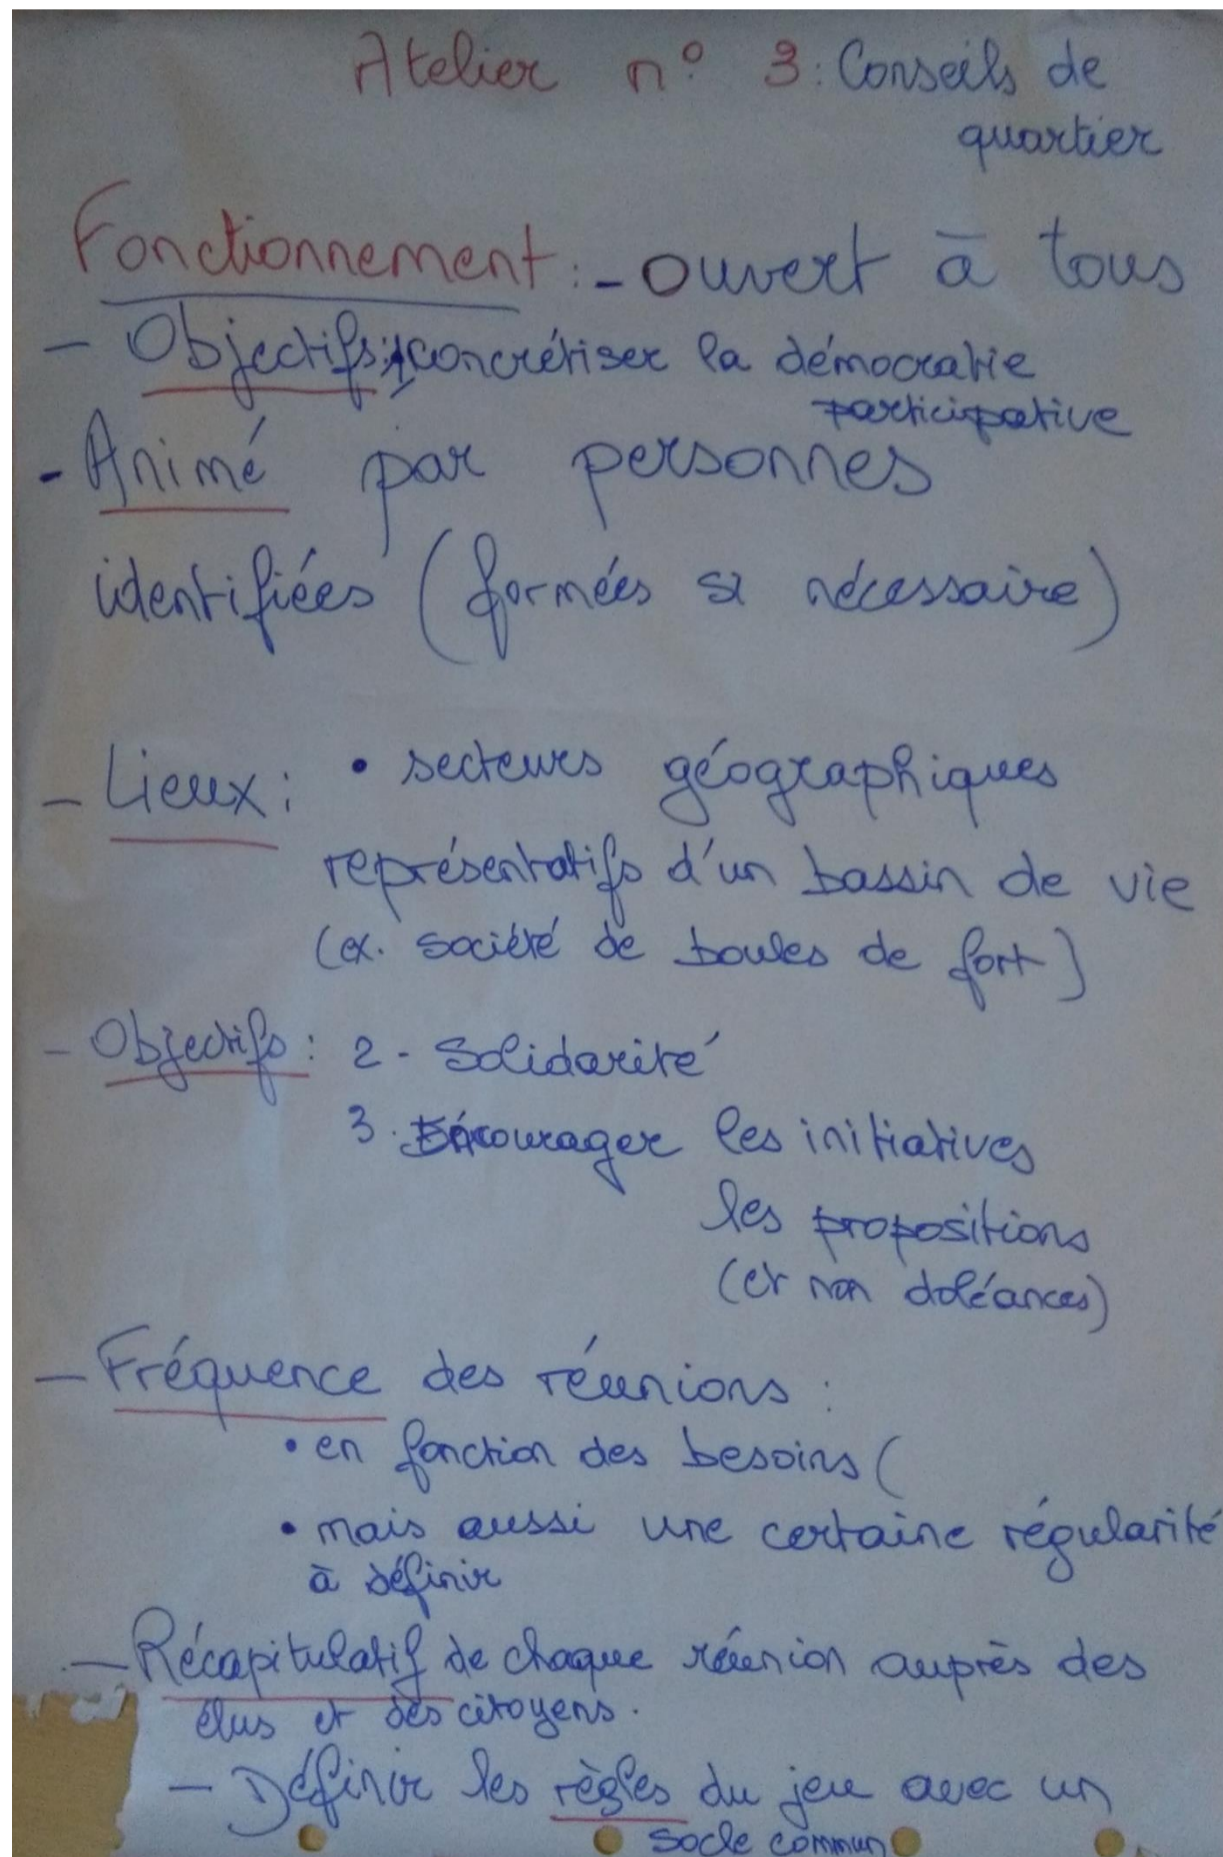 Atelier n° 3 : Conseils de
quartier
Fonctionnement : - ouvert à tous
- Objectifs : 1 concrétiser la démocratie
participative
- Animé par personnes
identifiées (formées si nécessaire)
- Lieux : • secteurs géographiques
représentatifs d'un bassin de vie
(ex. société de boules de fort)
- Objectifs : 2 - Solidarité
3. Encourager les initiatives
les propositions
(et non doléances)
- Fréquence des réunions :
• en fonction des besoins (
• mais aussi une certaine régularité
à définir
- Récapitulatif de chaque réunion auprès des
élus et des citoyens.
- Définir les règles du jeu avec un
socle commun